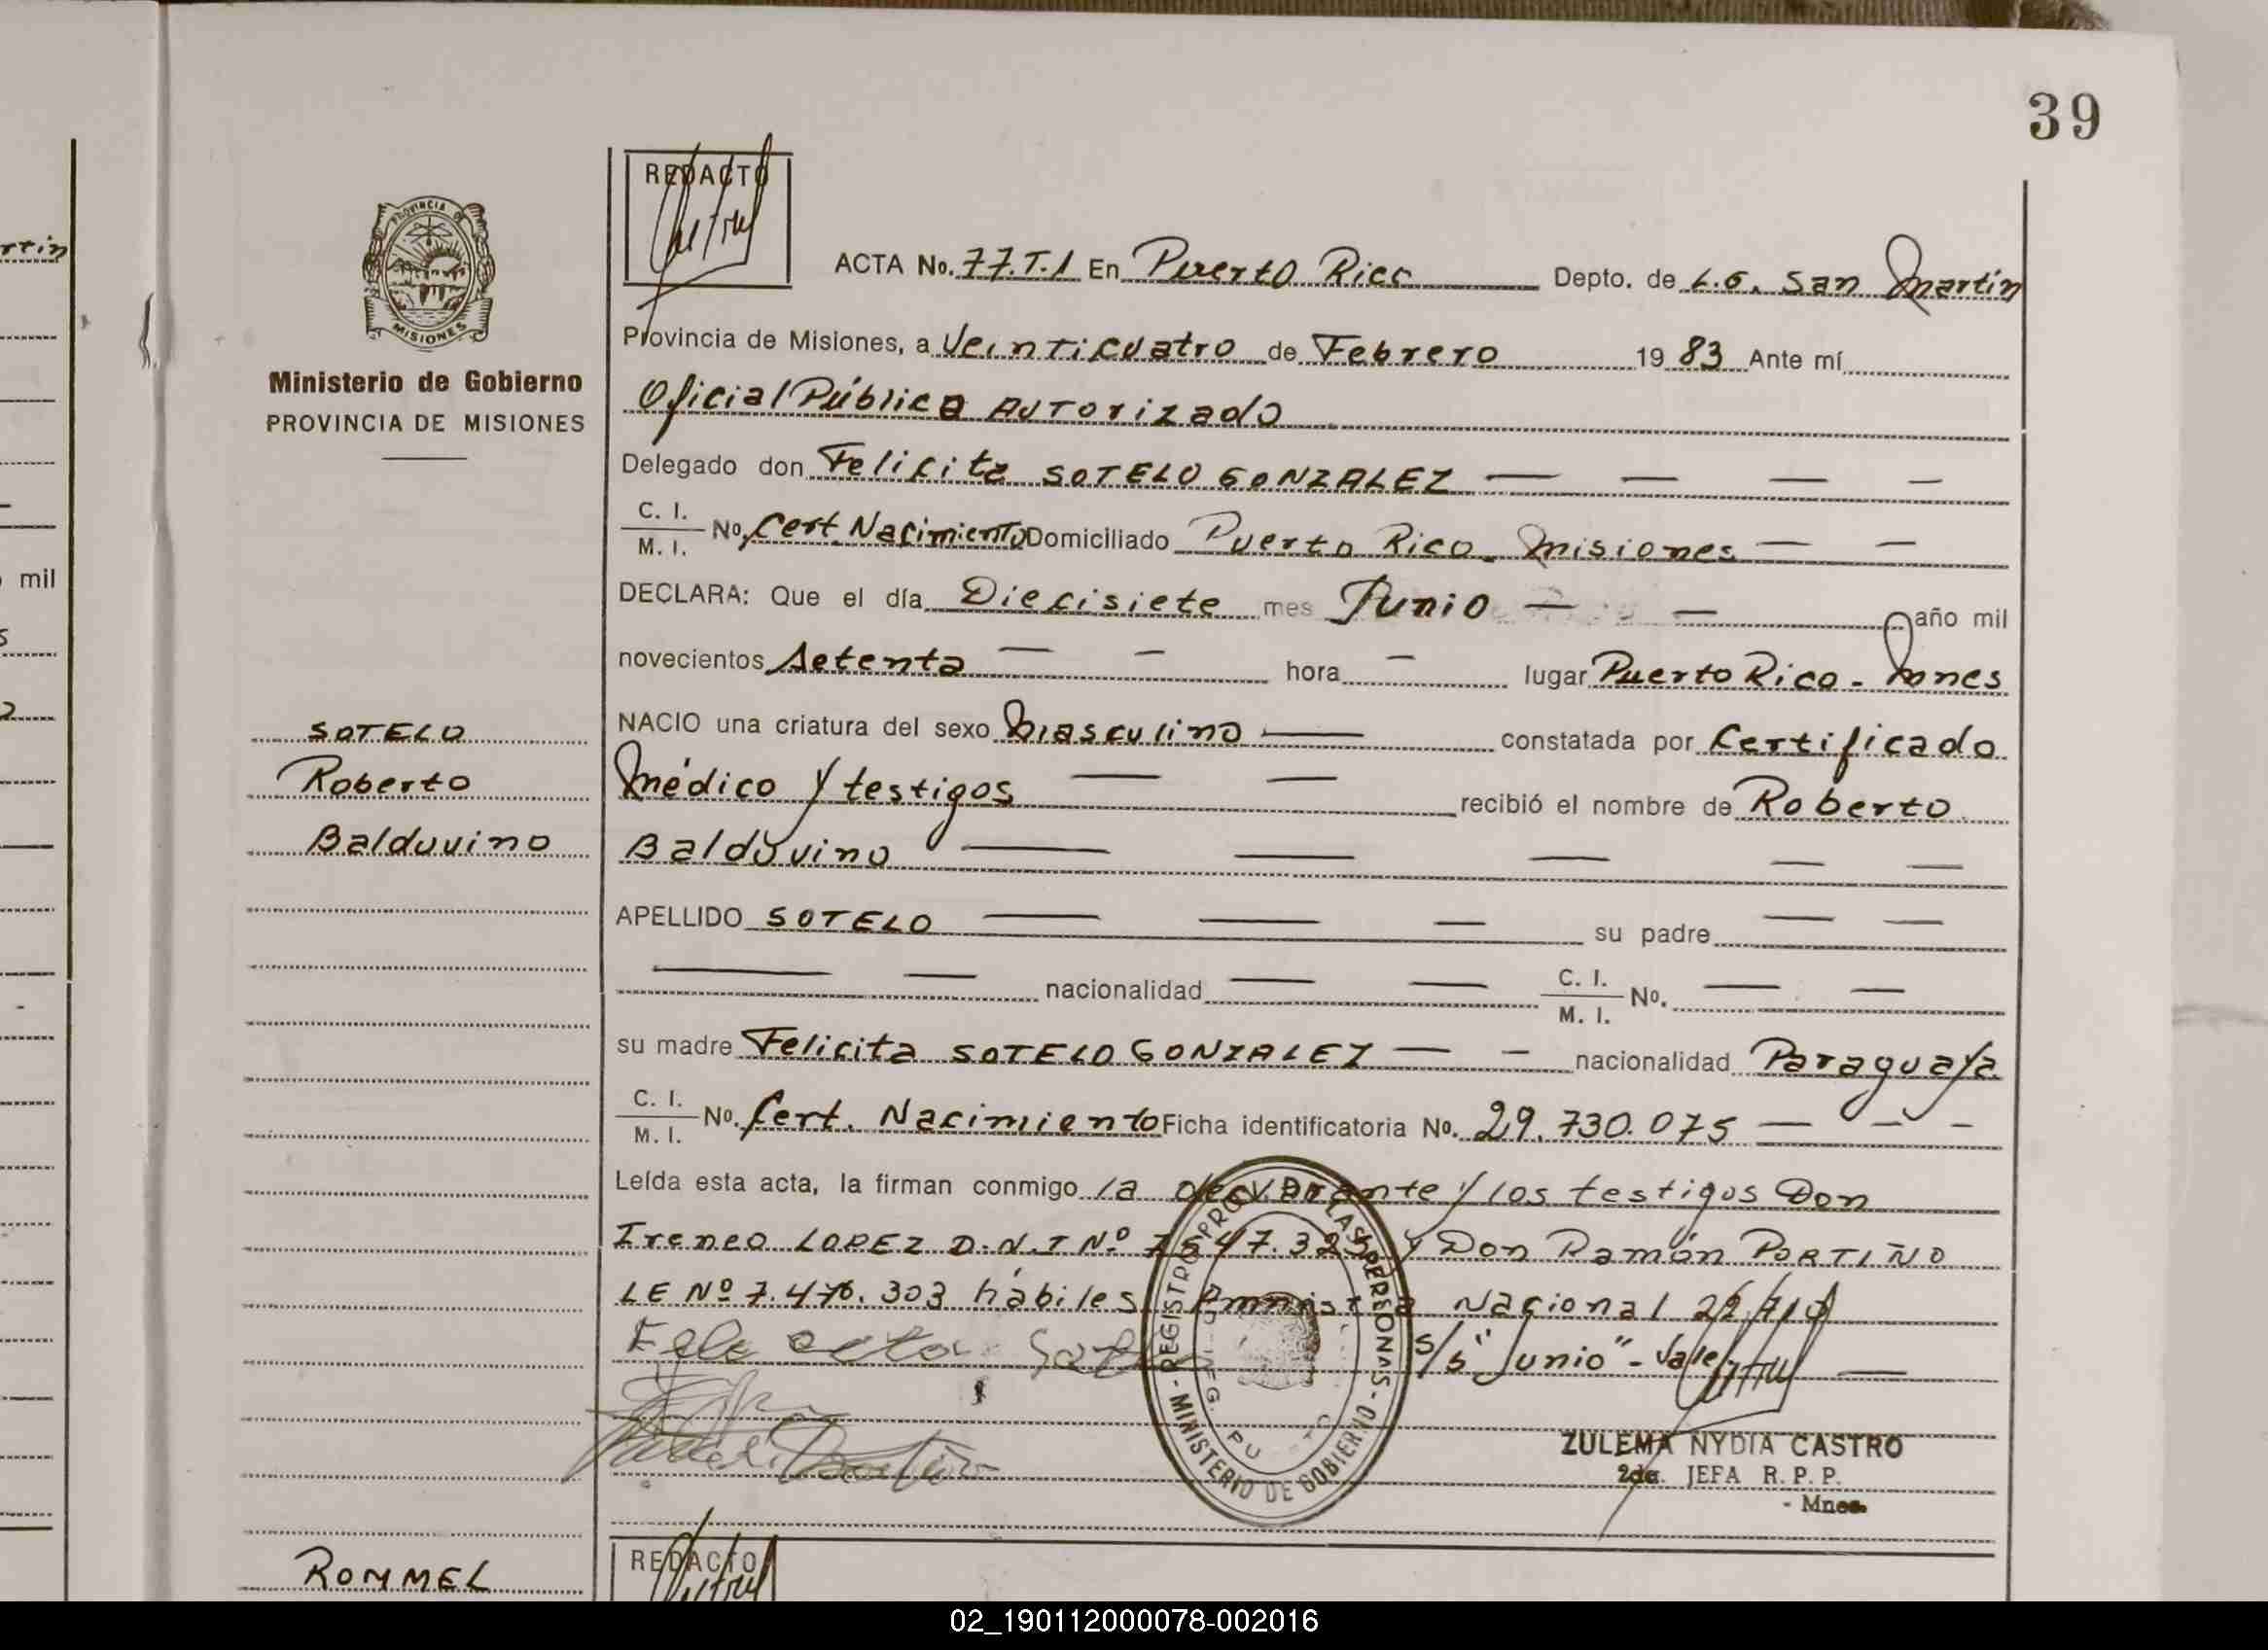 39
REDACTO
ACTA No. 77.T.1 En Puerto Rico Depto. de L.G. San Martín
Provincia de Misiones, a Veinticuatro de Febrero 19 83 Ante mí
Oficial Público Autorizado
Delegado don Felicita SOTELO GONZALEZ
C. I. / M. I. No. Cert. Nacimiento Domiciliado Puerto Rico - Misiones
DECLARA: Que el día Diecisiete mes Junio año mil
novecientos setenta hora lugar Puerto Rico - Mnes
NACIO una criatura del sexo Masculino constatada por Certificado
Médico y testigos recibió el nombre de Roberto
Balduvino
APELLIDO SOTELO su padre
nacionalidad C. I. / M. I. No.
su madre Felicita SOTELO GONZALEZ nacionalidad Paraguaya
C. I. / M. I. No. Cert. Nacimiento Ficha identificatoria No. 29.730.075
Leída esta acta, la firman conmigo la declarante y los testigos Don
Ireneo LOPEZ D.N.I Nº y Don Ramón PORTIÑO
LE Nº 7.476.303 hábiles. Amnistía Nacional
s/b "Junio" - Vale
ZULEMA NYDIA CASTRO
2da. JEFA R. P. P.
- Mnes.
REGISTRO PROV. DE LAS PERSONAS - MINISTERIO DE GOBIERNO -
PROVINCIA DE
MISIONES
Ministerio de Gobierno
PROVINCIA DE MISIONES
SOTELO
Roberto
Balduvino
ROMMEL
REDACTO
rtin
mil
02_190112000078-002016